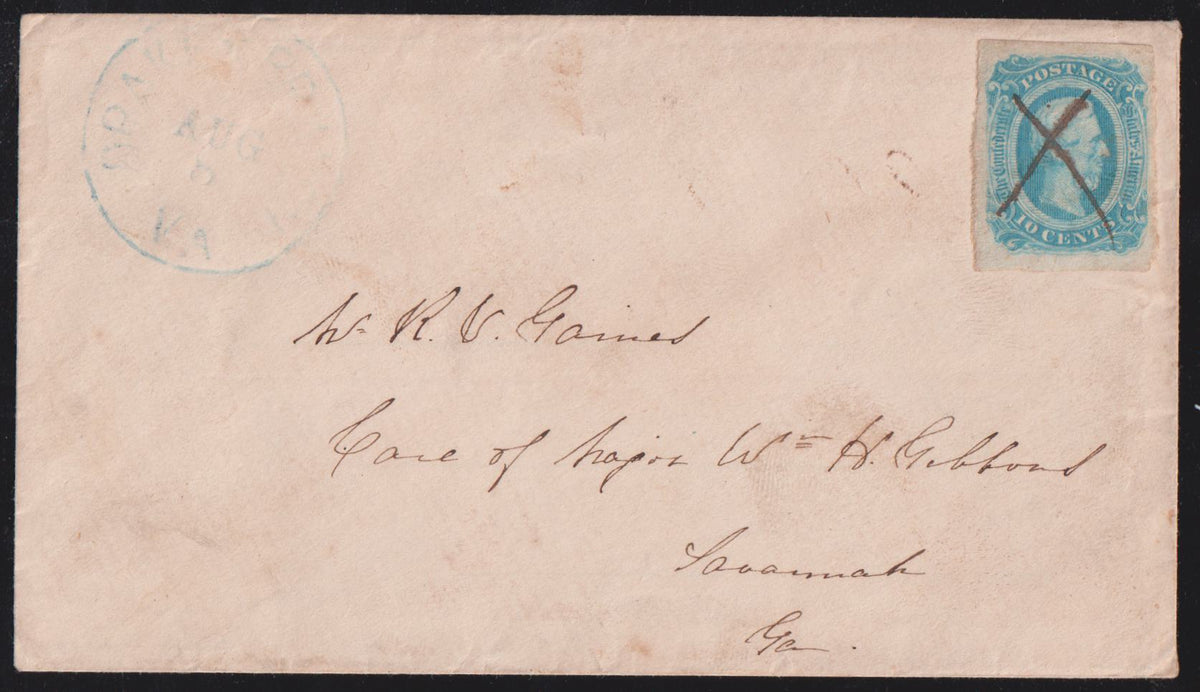 AUG
VA
POSTAGE
The Confederate States of America
10 CENTS
Mr. R. V. Gaines
Care of Major Wm H. Gibbons
Savannah
Ga.